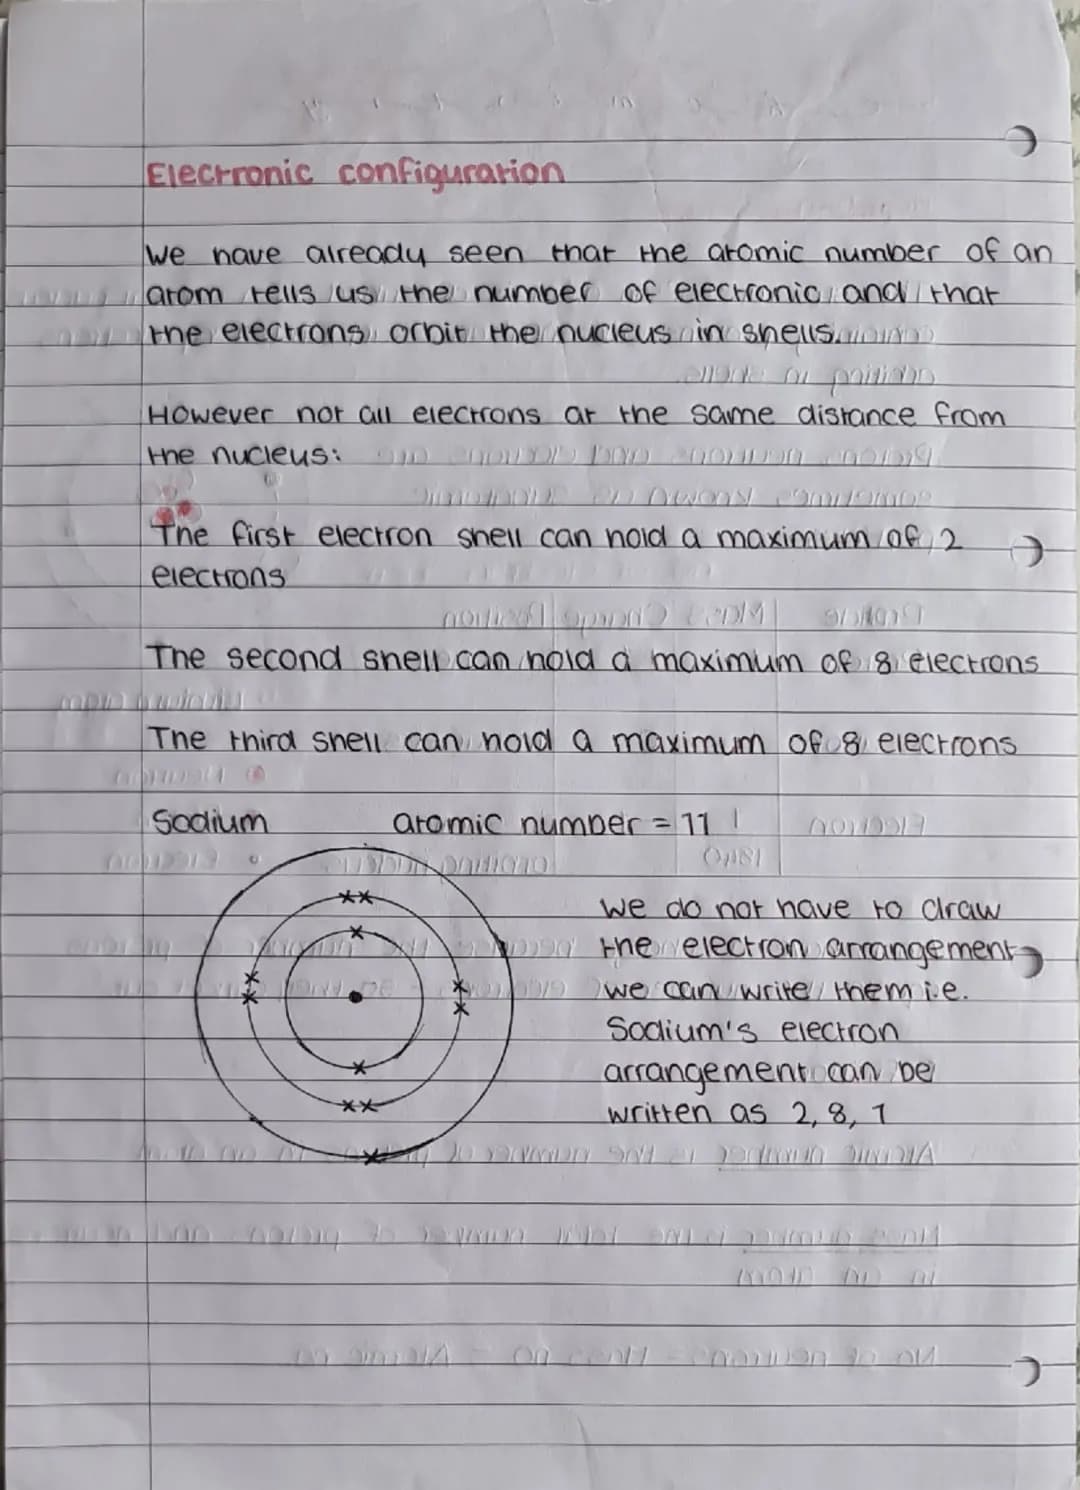 Electronic configuration
We have already seen that the atomic number of an
atom tells us the number of electronic and that
the electrons orbit the nucleus in shells.
However not all electrons at the same distance from
the nucleus:
The first electron shell can hold a maximum of 2
electrons
The second shell can hold a maximum of 8 electrons
The third shell can hold a maximum of 8 electrons
Sodium atomic number = 11
we do not have to draw
the electron arrangement
we can write them i.e.
Sodium's electron
arrangement can be
written as 2, 8, 1